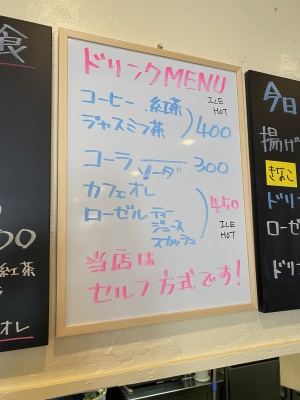 食
ドリンクMENU
コーヒー 紅茶 ICE
ジャスミン茶 HOT
400
コーラ ソーダ 300
カフェオレ
ローゼル ティー 450
ジュース ICE
スカッシュ HOT
当店は
セルフ方式です!
00
紅茶
オレ
今日
揚げ
きなこ
ドリ
ローゼ
ドリ